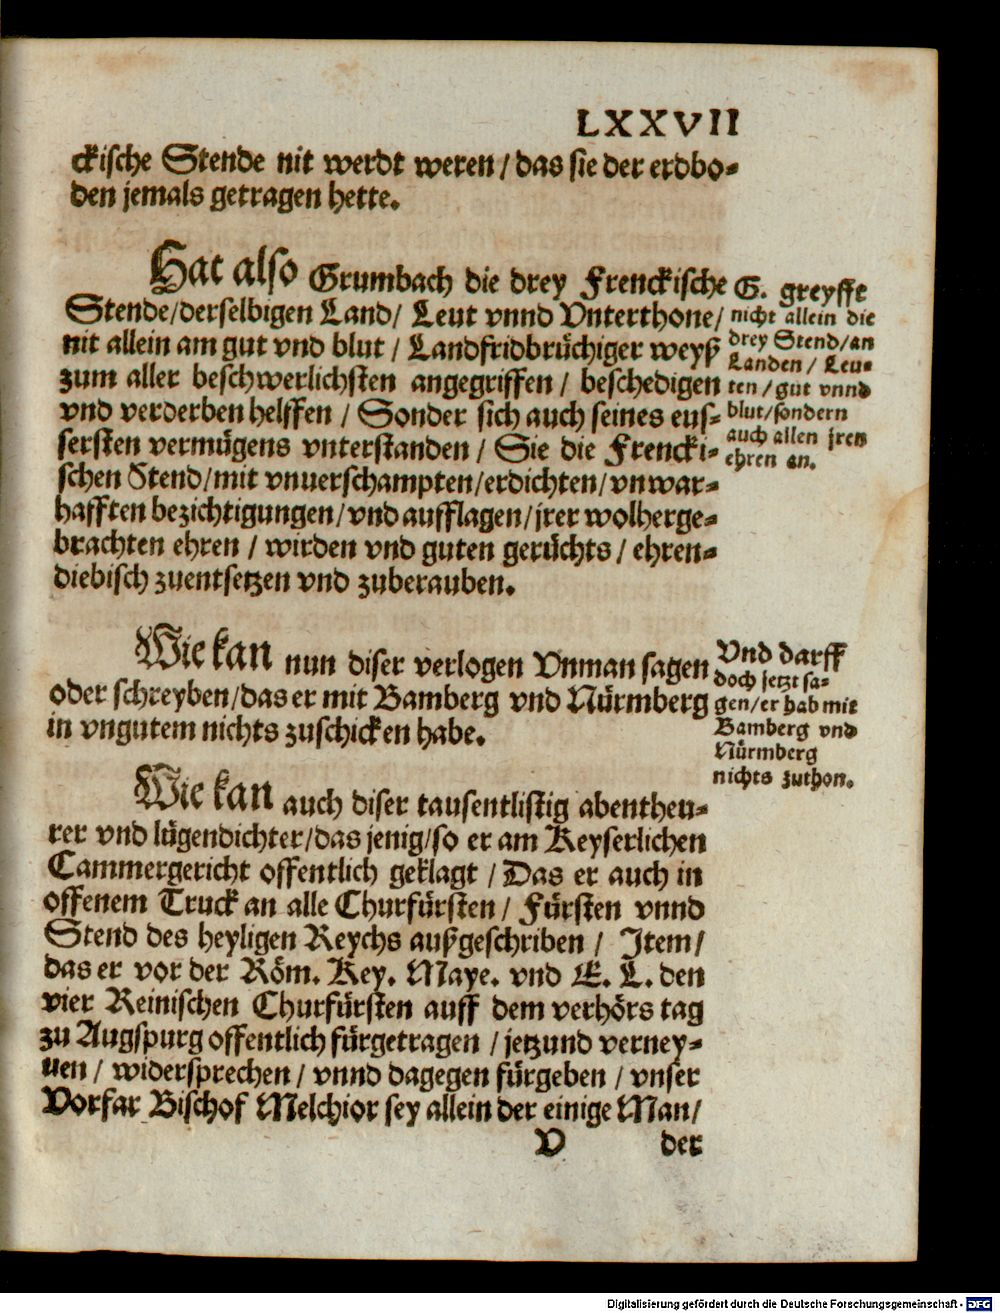 LXXVII
ckische Stende nit werdt weren / das sie der erdbo-
den jemals getragen hette.
Hat also Grumbach die drey Frenckische
Stende/derselbigen Land/ Leut vnnd Vnterthone/
nit allein am gut vnd blut / Landfridbrüchiger weyß
zum aller beschwerlichsten angegriffen / beschedigen
vnd verderben helffen / Sonder sich auch seines eus-
sersten vermügens vnterstanden / Sie die Frencki-
schen Stend/mit vnuerschampten/erdichten/vnwar-
hafften bezichtigungen/vnd aufflagen/jrer wolherge-
brachten ehren / wirden vnd guten gerüchts / ehren-
diebisch zuentsetzen vnd zuberauben.
G. greyffe
nicht allein die
drey Stend/an
Landen / Leu-
ten / gut vnnd
blut/sondern
auch allen jren
ehren an.
Wie kan nun diser verlogen Vnman sagen
oder schreyben/das er mit Bamberg vnd Nürmberg
in vngutem nichts zuschicken habe.
Vnd darff
doch jetzt sa-
gen/er hab mit
Bamberg vnd
Nürmberg
nichts zuthon.
Wie kan auch diser tausentlistig abentheu-
rer vnd lügendichter/das jenig/so er am Keyserlichen
Cammergericht offentlich geklagt / Das er auch in
offenem Truck an alle Churfürsten / Fürsten vnnd
Stend des heyligen Reychs außgeschriben / Item/
das er vor der Röm. Key. Maye. vnd E. L. den
vier Reinischen Churfürsten auff dem verhörs tag
zu Augspurg offentlich fürgetragen / jetzund verney-
nen / widersprechen / vnnd dagegen fürgeben / vnser
Vorfar Bischof Melchior sey allein der einige Man/
V der
Digitalisierung gefördert durch die Deutsche Forschungsgemeinschaft - DFG